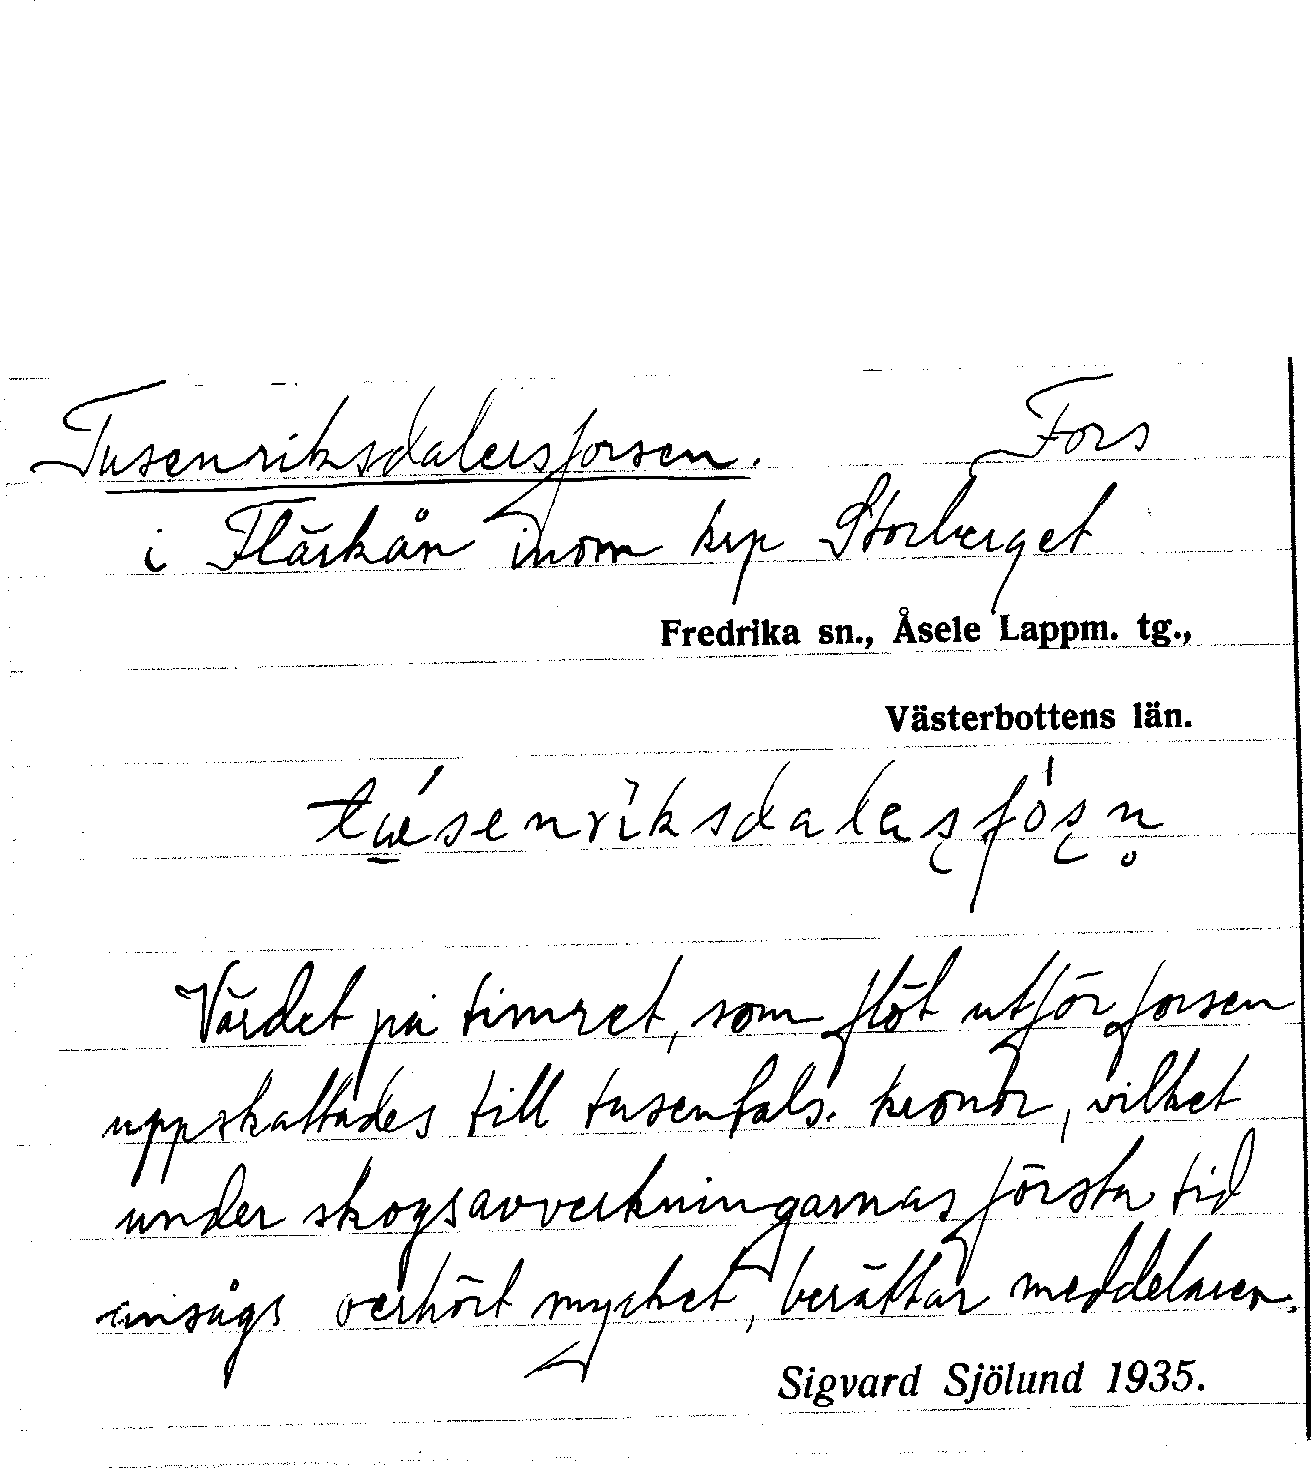 Tusenriksdalersforsen. Fors
i Flärkån inom krp Storberget
Fredrika sn., Åsele Lappm. tg.,
Västerbottens län.
Värdet på timret, som flöt utför forsen
uppskattades till tusentals kronor, vilket
under skogsavverkningarnas första tid
ansågs oerhört mycket, berättar meddelaren.
Sigvard Sjölund 1935.